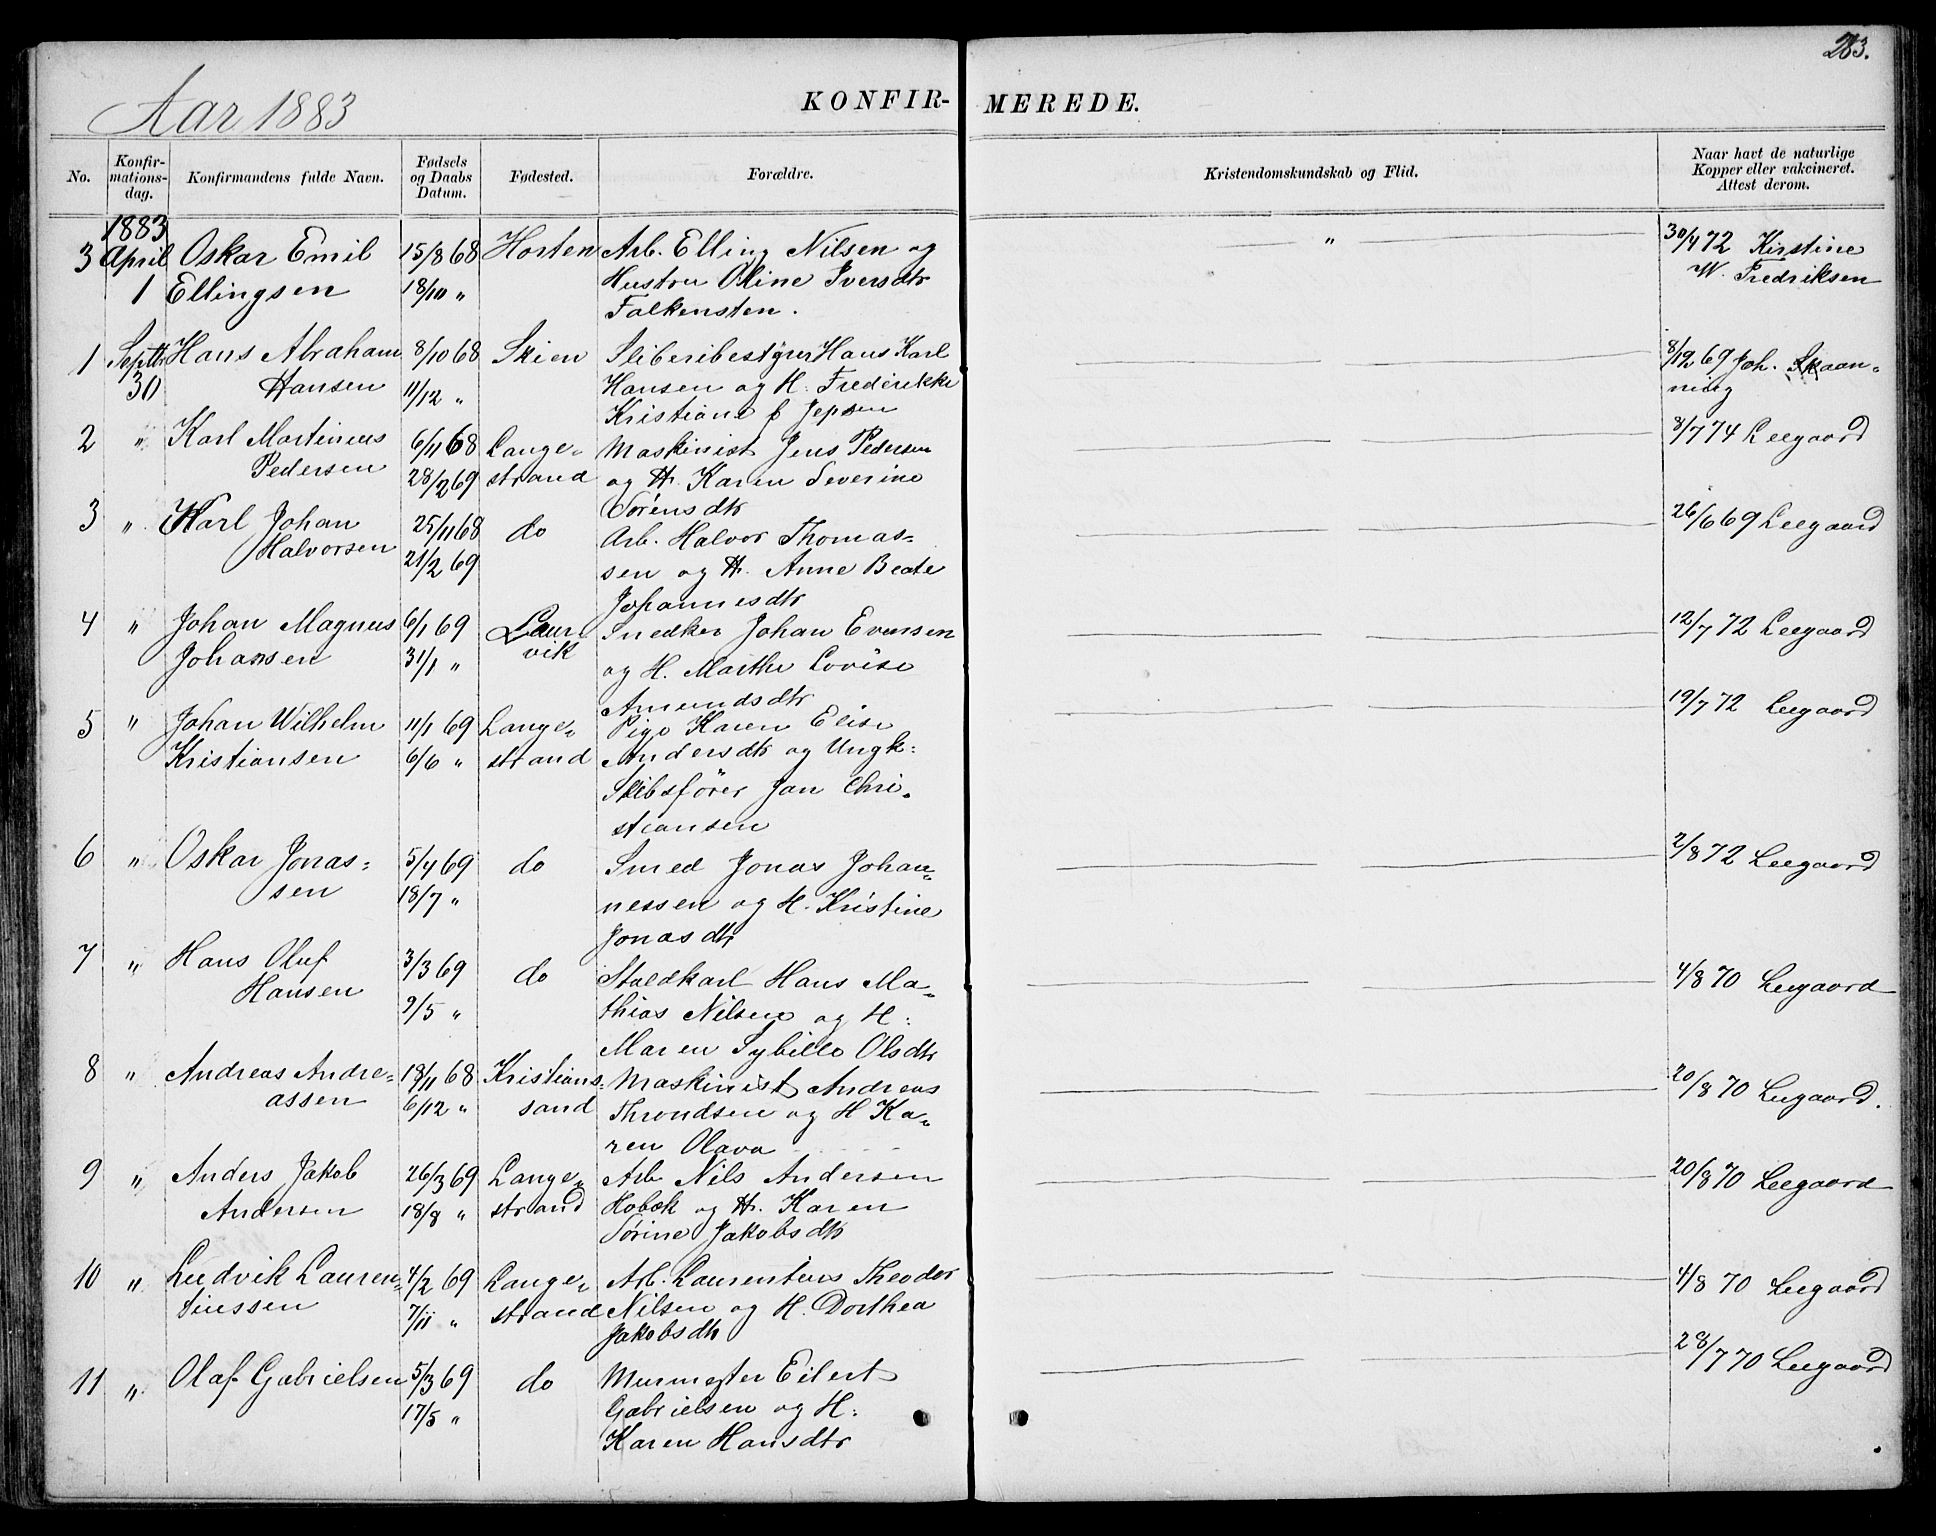 283.
Aar 1883
KONFIR- MEREDE.
No. Konfir-mations-dag. Konfirmandens fulde Navn. Fødsels og Daabs Datum. Fødested. Forældre. Kristendomskundskab og Flid. Naar havt de naturlige Kopper eller vakcineret. Attest derom.
1883
3 April Oskar Emil 15/8 68 Horten Arb. Elling Nilsen og " 30/4 72 Kirstine
1 Ellingsen 18/10 " Hustru Oline Iversdtr W. Fredriksen
Falkensten.
1 Septbr Hans Abraham 8/10 68 Skien Sliberibestyrer Hans Karl 8/12 69 Joh. Skaan-
30 Hansen 11/12 " Hansen og H. Frederikke ning
Kristiane f Jepsen
2 " Karl Martineus 6/11 68 Lange- Maskinist Jens Pedersen 8/7 74 Leegaard
Pedersen 28/2 69 strand og H. Karen Severine
Sörensdtr
3 " Karl Johan 25/11 68 do Arb. Halvor Thomas- 26/6 69 Leegaard
Halvorsen 21/2 69 sen og H. Anne Beate
Johannesdtr
4 " Johan Magnus 6/1 69 Laur- Snedker Johan Evensen 12/7 72 Leegaard
Johansen 31/1 " vik og H. Marthe Lovise
Amundsdtr
5 " Johan Wilhelm 11/1 69 Lange- Pige Karen Elise 19/7 72 Leegaard
Kristiansen 6/6 " strand Andersdtr og Ungk:
Skibsförer Jan Chri-
stiansen
6 " Oskar Jonas- 5/4 69 do Smed Jonas Johan- 2/8 72 Leegaard
sen 18/7 " nessen og H. Kristine
Jonasdtr
7 " Hans Oluf 3/3 69 do Staldkarl Hans Ma- 4/8 70 Leegaard
Hansen 9/5 " thias Nilsen og H:
Maren Sybille Olsdtr
8 " Andreas Andre- 18/11 68 Kristians- Maskinist Andreas 20/8 70 Leegaard.
assen 6/12 " sand Throndsen og H Ka-
ren Olava
9 " Anders Jakob 26/3 69 Lange- Arb Nils Andersen 20/8 70 Leegaard
Andersen 18/8 " strand Hobæk og H. Karen
Sörine Jakobsdtr
10 " Ludvik Lauren- 4/2 69 Lange- Arb. Laurentius Theodor 4/8 70 Leegaard
tiussen 7/11 " strand Nilsen og H. Dorthea
Jakobsdtr
11 " Olaf Gabrielsen 5/3 69 do Murmester Eilert 28/7 70 Leegaard
17/5 " Gabrielsen og H:
Karen Hansdtr